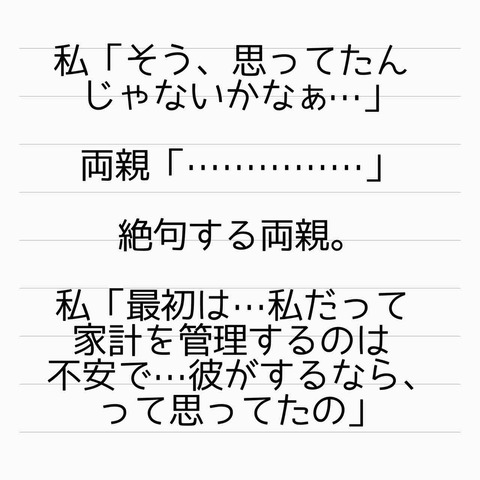 私「そう、思ってたん
じゃないかなぁ…」
両親「……………」
絶句する両親。
私「最初は…私だって
家計を管理するのは
不安で…彼がするなら、
って思ってたの」